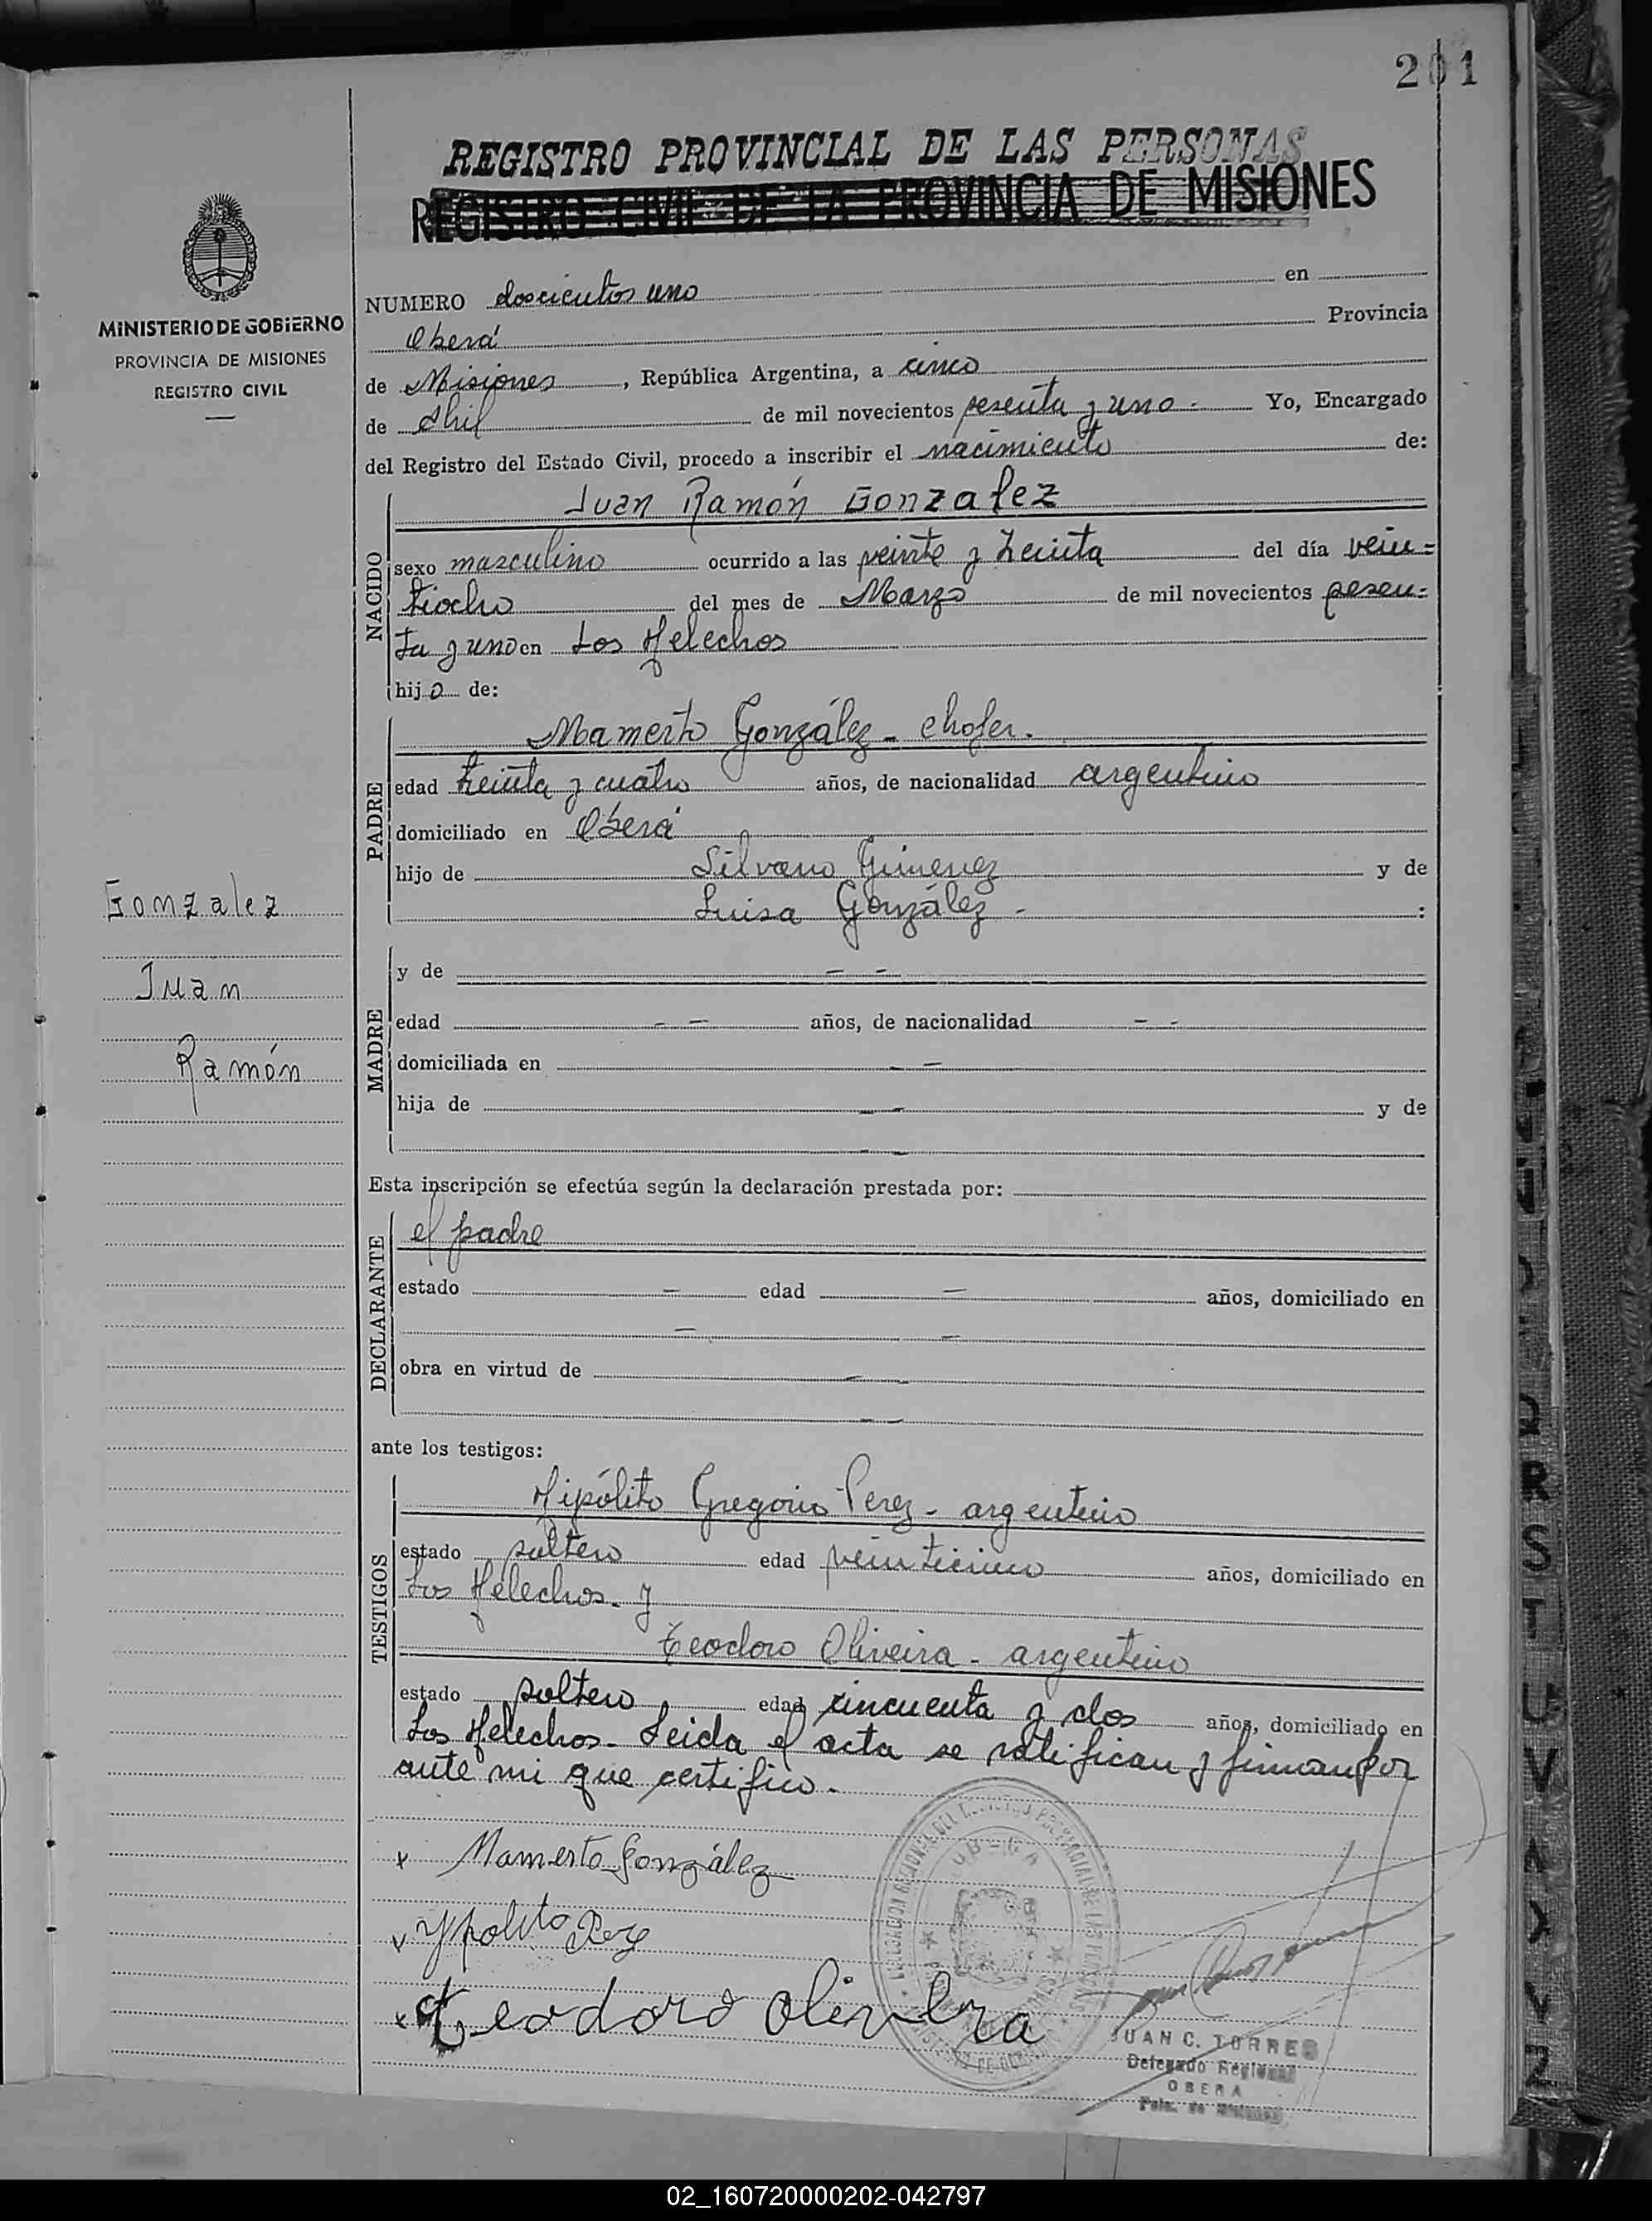 201
REGISTRO PROVINCIAL DE LAS PERSONAS
REGISTRO CIVIL DE LA PROVINCIA DE MISIONES
MINISTERIO DE GOBIERNO
PROVINCIA DE MISIONES
REGISTRO CIVIL
NUMERO doscientos uno en
Oberá Provincia
de Misiones, República Argentina, a cinco
de Abril de mil novecientos sesenta y uno.- Yo, Encargado
del Registro del Estado Civil, procedo a inscribir el nacimiento de:
NACIDO
Juan Ramón Gonzalez
sexo masculino ocurrido a las veinte y treinta del día vein=
tiocho del mes de Marzo de mil novecientos sesen=
ta y uno en Los Helechos
hijo de:
PADRE
Mamerto González - chofer.
edad treinta y cuatro años, de nacionalidad argentino
domiciliado en Oberá
hijo de Silvano Gimenez y de
Luisa González - :
Gonzalez
Juan
Ramón
MADRE
y de - -
edad - - años, de nacionalidad - -
domiciliada en - -
hija de - - y de
- -
Esta inscripción se efectúa según la declaración prestada por:
DECLARANTE
el padre
estado - edad - años, domiciliado en
- -
obra en virtud de - -
- -
ante los testigos:
TESTIGOS
Hipólito Gregorio Perez - argentino
estado soltero edad veinticinco años, domiciliado en
Los Helechos - y
Teodoro Oliveira - argentino
estado soltero edad cincuenta y dos años, domiciliado en
Los Helechos - Leida el acta se ratifican y firman por
ante mi que certifico.-
x Mamerto González
x Ypolito Perez
x Teodoro Oliveira
OBERA
JUAN C. TORRES
Delegado Regional
OBERA
Pcia. de Misiones
R
S
T
U
V
X
Y
Z
02_160720000202-042797